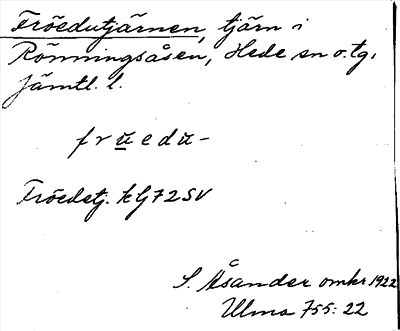 Fröedutjärnen, tjärn i
Rönningsåsen, Hede sn o. tg.
Jämtl. l.
fruedu-
Fröedetj. kG72SV
S. Åsander omkr 1922
Ulma 755:22